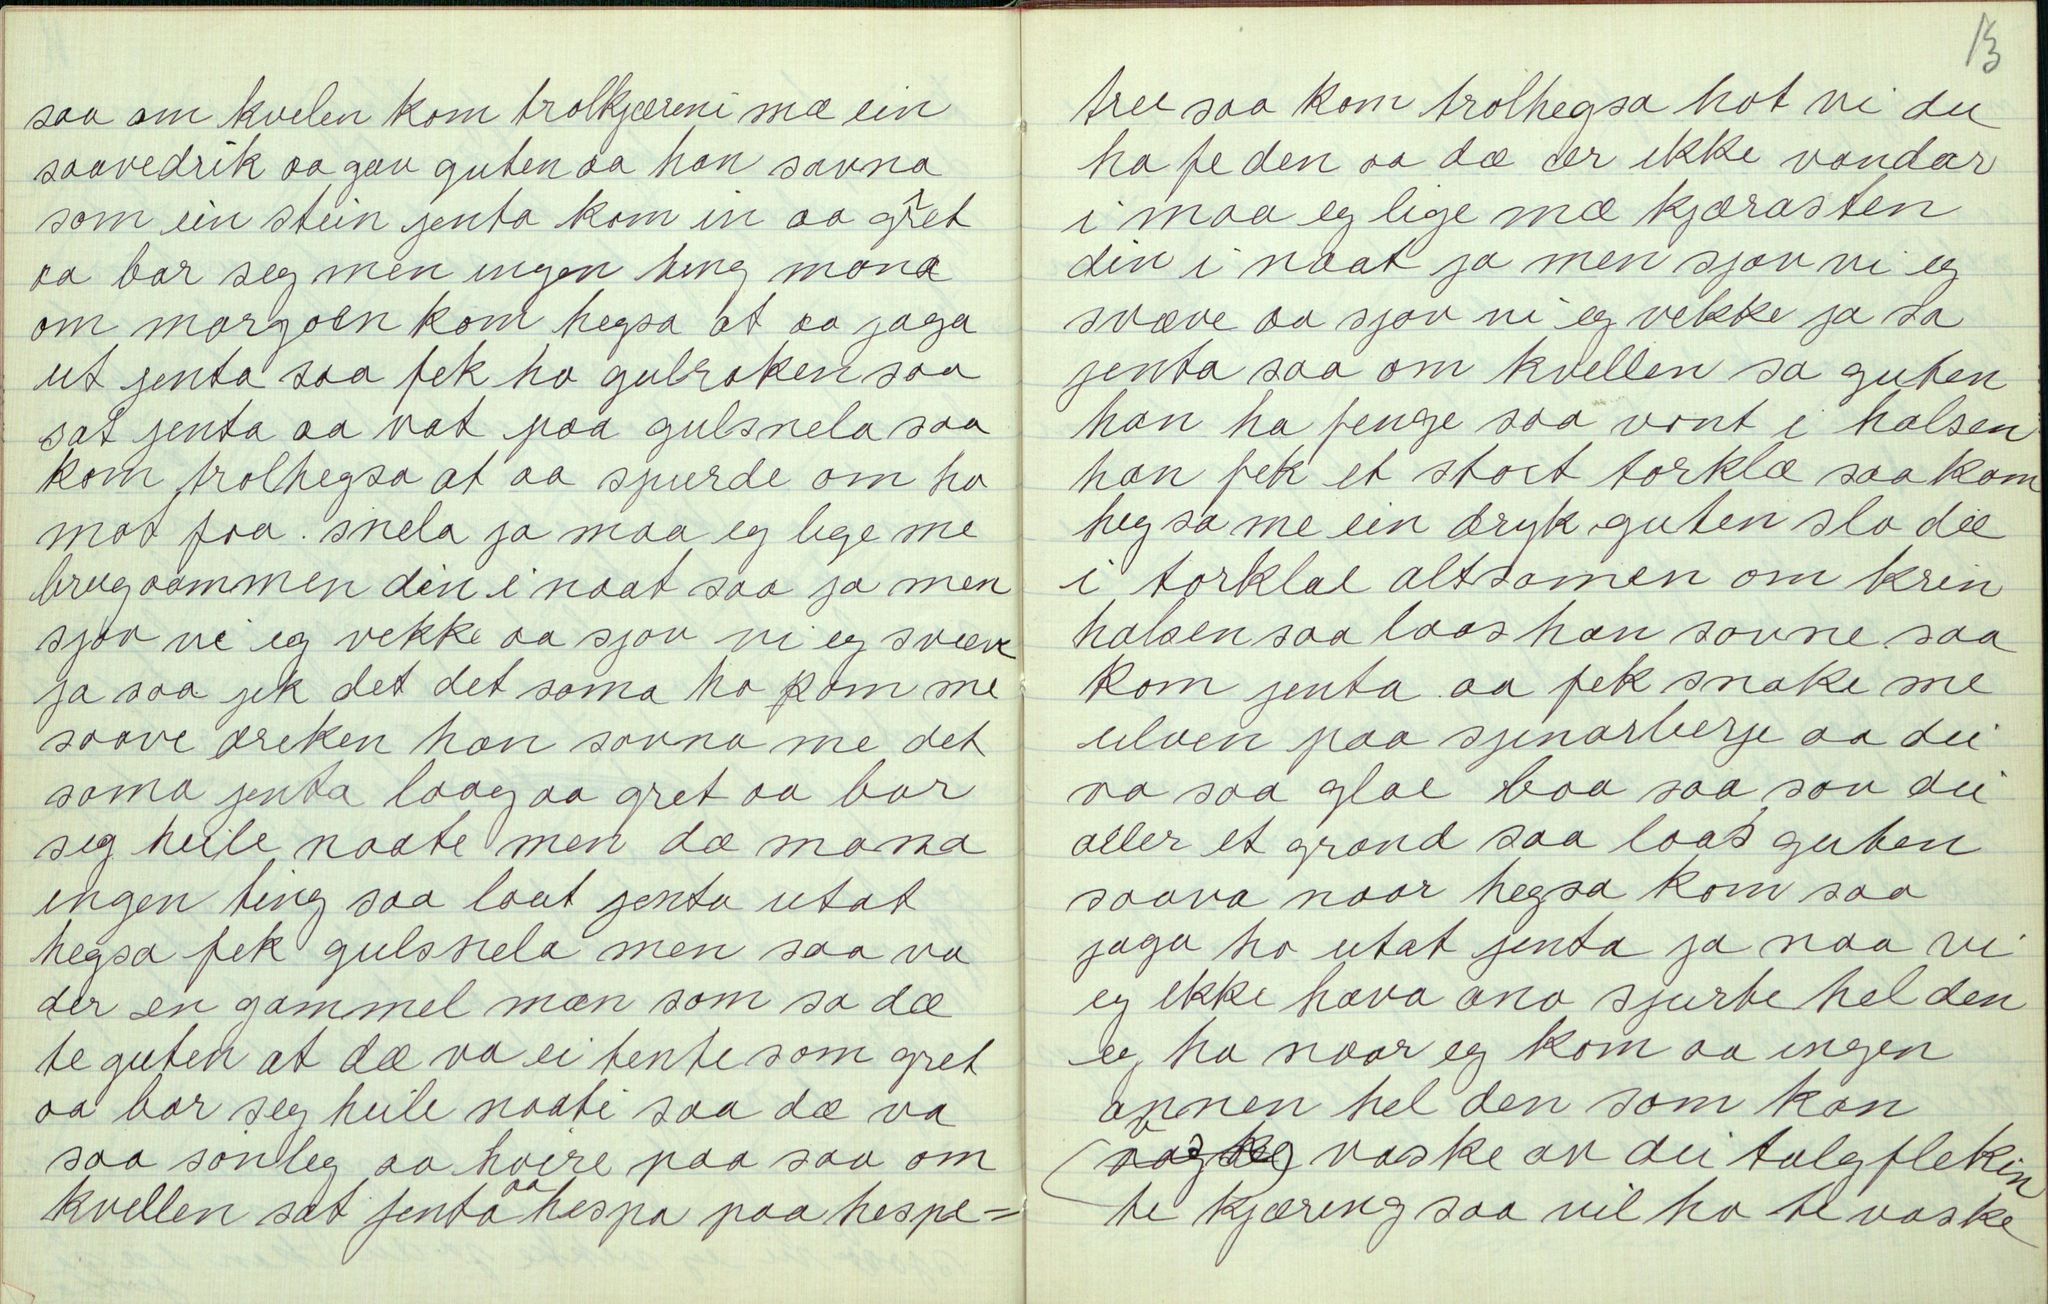 saa om kvelen kom trolkjæreni mæ ein
saavedrik aa gav guten aa han savna
som ein stein jenta kom in aa gret
aa bar seg men ingen ting mona
om morgoen kom hegsa at aa jaga
ut jenta saa fek ho gulroken saa
sat jenta aa vat paa gulsnela saa
kom trolhegsa at aa spurde om ho
mot faa snela ja maa eg lege me
brugaammen din i naat saa ja men
sjøv vi eg vekke aa sjøv vi eg svæve
ja saa jek det det sama ho kom me
saave dreken han sovna me det
sama jenta laag aa gret aa bar
seg heile naate men dæ mona
ingen ting saa laat jenta utat
hegsa fek gulsnela men saa va
der en gammel man som sa dæ
te guten at dæ va ei tente som gret
aa bar seg heile naati saa dæ va
saa sønleg aa høire paa saa om
kvellen sat jenta aa hespa paa hespe=
13
tree saa kom trolhegsa hot vi du
ha fe den aa dæ ær ikke vandar
i maa eg lige mæ kjærasten
din i naat ja men sjøv vi eg
svæve aa sjøv vi eg vekke ja sa
jenta saa om kvellen sa guten
han ha fenge saa vont i halsen
han fek et stort torklæ saa kom
hegsa me ein dryk guten slo dæ
i torklæ altsamen om krin
halsen saa laas han sovne saa
kom jenta aa fek snake me
ulven paa sjinarberje aa dei
va saa glae baa saa sov dei
aller et grand saa laas guten
saava naar hegsa kom saa
jaga ho utat jenta ja naa vi
eg ikke hava ana sjurte hel den
eg ha naar eg kom aa ingen
annen hel den som kan
vaske av dei talgflekin
te kjæring saa vil ho te vaske